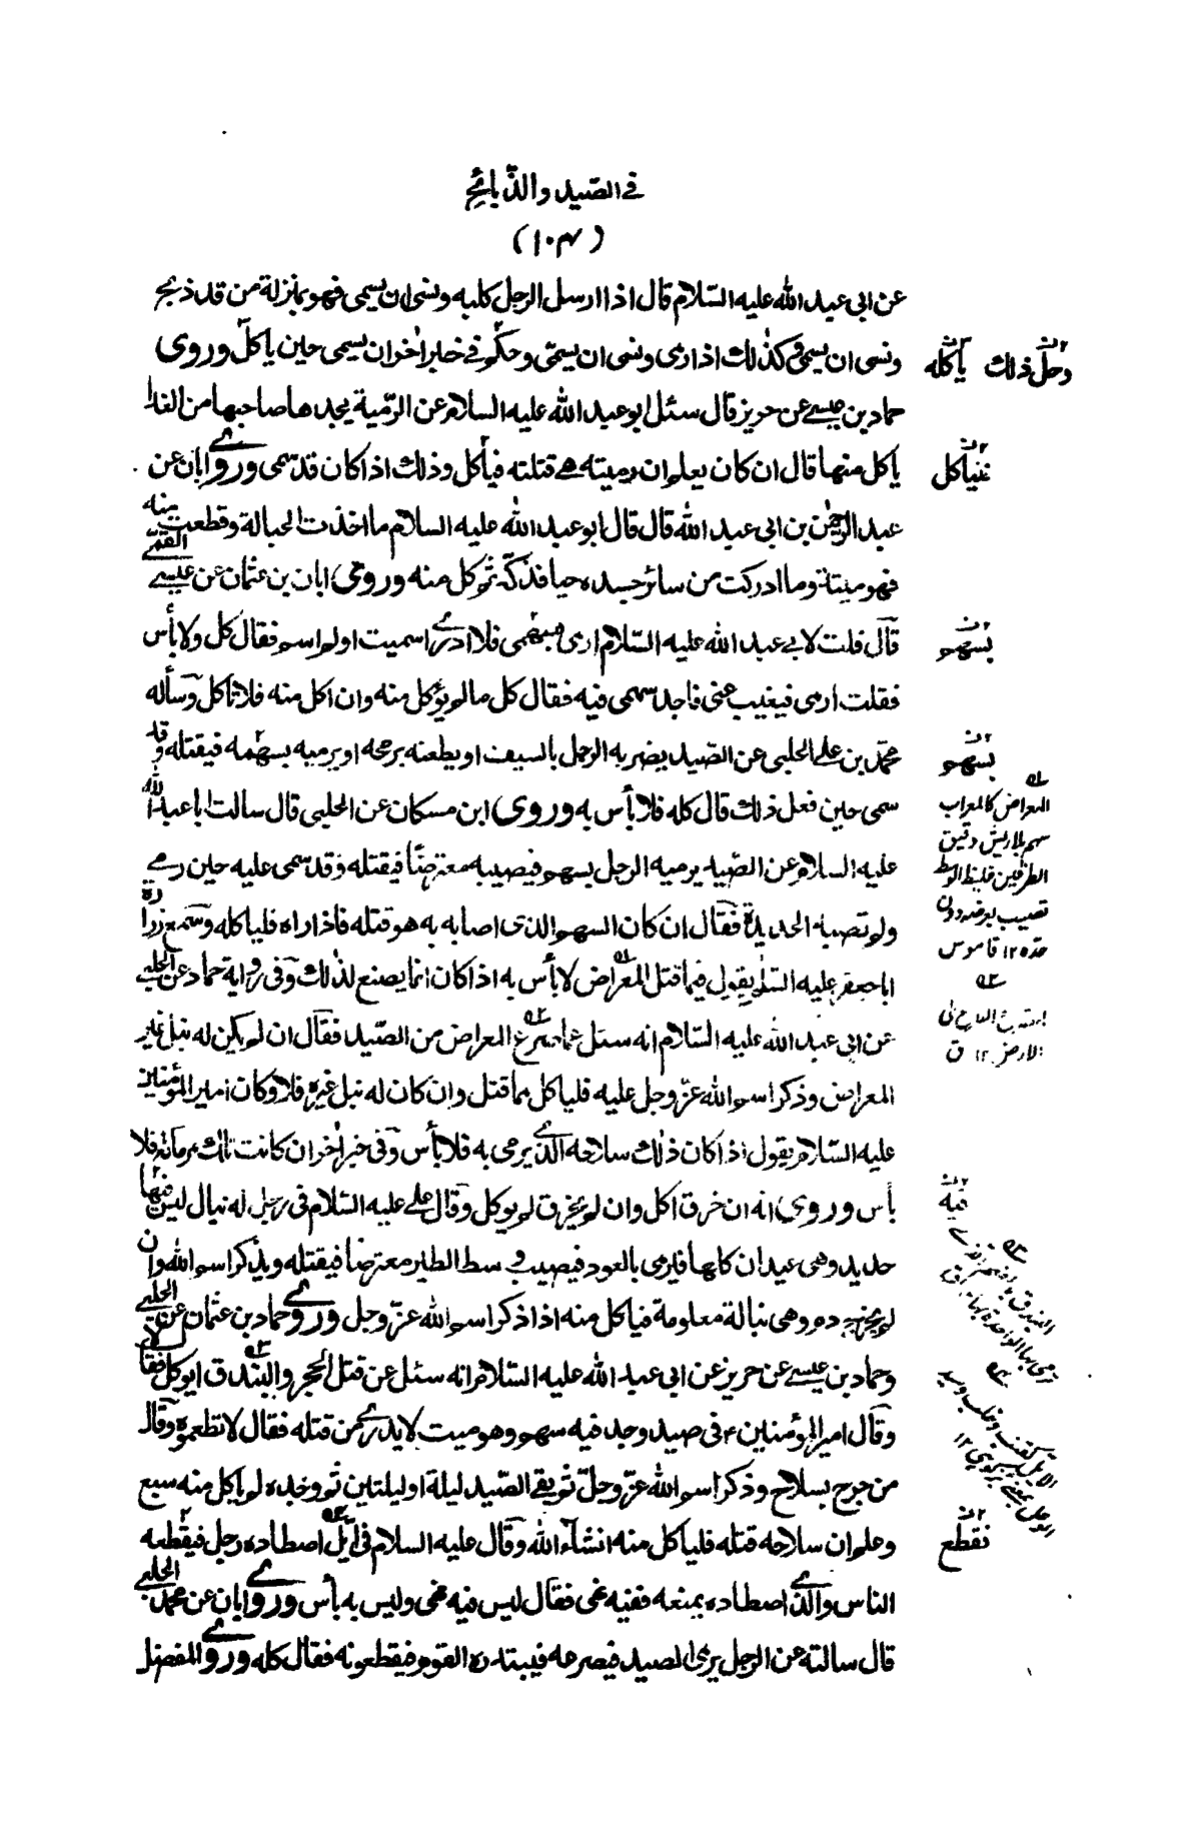 في الصّيد والذّبائح
(١٠٣)
عن ابي عبد الله عليه السّلام قال اذا ارسل الرجل كلبه ونسى ان يسمى فهو بمنزلة من قد ذبح
ونسى ان يسمى وكذلك اذا رمى ونسى ان يسمّى وحكم في خبر اخر ان يسمى حين ياكل وروى
حماد بن عيسے عن حريز قال سئل ابو عبد الله عليه السلام عن الرّمية يجدها صاحبها من الغد ا
ياكل منها قال ان كان يعلم ان رميته هے قتلته فيأكل وذلك اذا كان قد سمى وروے ابان عن
عبد الرحمٰن بن ابي عبد الله قال قال ابو عبد الله عليه السلام ما اخذت الحبالة وقطعت منه
فهو ميتة وما ادركت من سائر جسده حيا فذكّه ثم كل منه وروى ابان بن عثمان عن عيسے القمّے
قال قلت لابي عبد الله عليه السّلام ارمى بسهمى فلا ادرے اسميت او لم اسم فقال كل ولا بأس
فقلت ارمى فيغيب عنى فاجد سهمى فيه فقال كل ما لم يؤكل منه وان اكل منه فلا تاكل وسأله
محمّد بن علي الحلبي عن الصّيد يضربه الرجل بالسيف او يطعنه برمحه او يرميه بسهمه فيقتله وقد
سمى حين فعل ذلك قال كله فلا بأس به وروى ابن مسكان عن الحلبي قال سالت ابا عبد الله
عليه السلام عن الصّيد يرميه الرجل بسهم فيصيبه معترضًا فيقتله وقد سمى عليه حين رمے
ولم تصبه الحديدة فقال ان كان السهم الذى اصابه به هو قتله فاذا راه فلياكله وسمع زرارة
ابا جعفر عليه السّلام يقول فيما قتل المعراض لا بأس به اذا كان انما يصنع لذلك وفى رواية حماد عن الحلبے
عن ابي عبد الله عليه السّلام انه سئل عما صرع المعراض من الصّيد فقال ان لم يكن له نبل غير
المعراض وذكر اسم الله عزّ وجل عليه فلياكل مما قتل وان كان له نبل غيره فلا وكان امير المؤمنين
عليه السّلام يقول اذا كان ذلك سلاحه الّذے يرمى به فلا بأس وفى خبر اخر ان كانت تلك مرماته فلا
بأس وروى انه ان خرق اكل وان لم يخرق لم يوكل وقال علے عليه السّلام فى رجل له نبال ليس فيها
حديد وهى عيدان كلها فيرمى بالعود فيصيب وسط الطير معترضا فيقتله ويذكر اسم الله وان
لم يخرج دم وهى نبالة معلومة فياكل منه اذا ذكر اسم الله عزّ وجل وروے حماد بن عثمان عن الحلبے
وحماد بن عيسے عن حريز عن ابي عبد الله عليه السّلام انه سئل عن قتل الحجر والبندق ايوكل فقال لا
وقال امير المؤمنين ع فى صيد وجد فيه سهم وهو ميت لا يدرے من قتله فقال لا تطعموه وقال
من جرح بسلاح وذكر اسم الله عزّ وجلّ ثم بقے الصّيد ليلة او ليلتين ثم وجده لم ياكل منه سبع
وعلم ان سلاحه قتله فلياكل منه انشاء الله وقال عليه السلام فى ايّل اصطاده رجل فيقطعه
الناس والّذے اصطاده يمنعه ففيه نهى فقال ليس فيه نهى وليس به بأس وروے ابان عن محمد الحلبے
قال سالته عن الرجل يرمى الصيد فيصرعه فيبتدره القوم فيقطعونه فقال كله وروے المفضل
ياكله وحلّ ذلك
فيأكل
بسهم
بسهم
المعراض كالمحراب
سهم بلا ريش دقيق
الطرفين غليظ الوسط
تصيب بعرضه دون
حده ١٢ قاموس
الارض ١٢ ق
فيه
فقطع